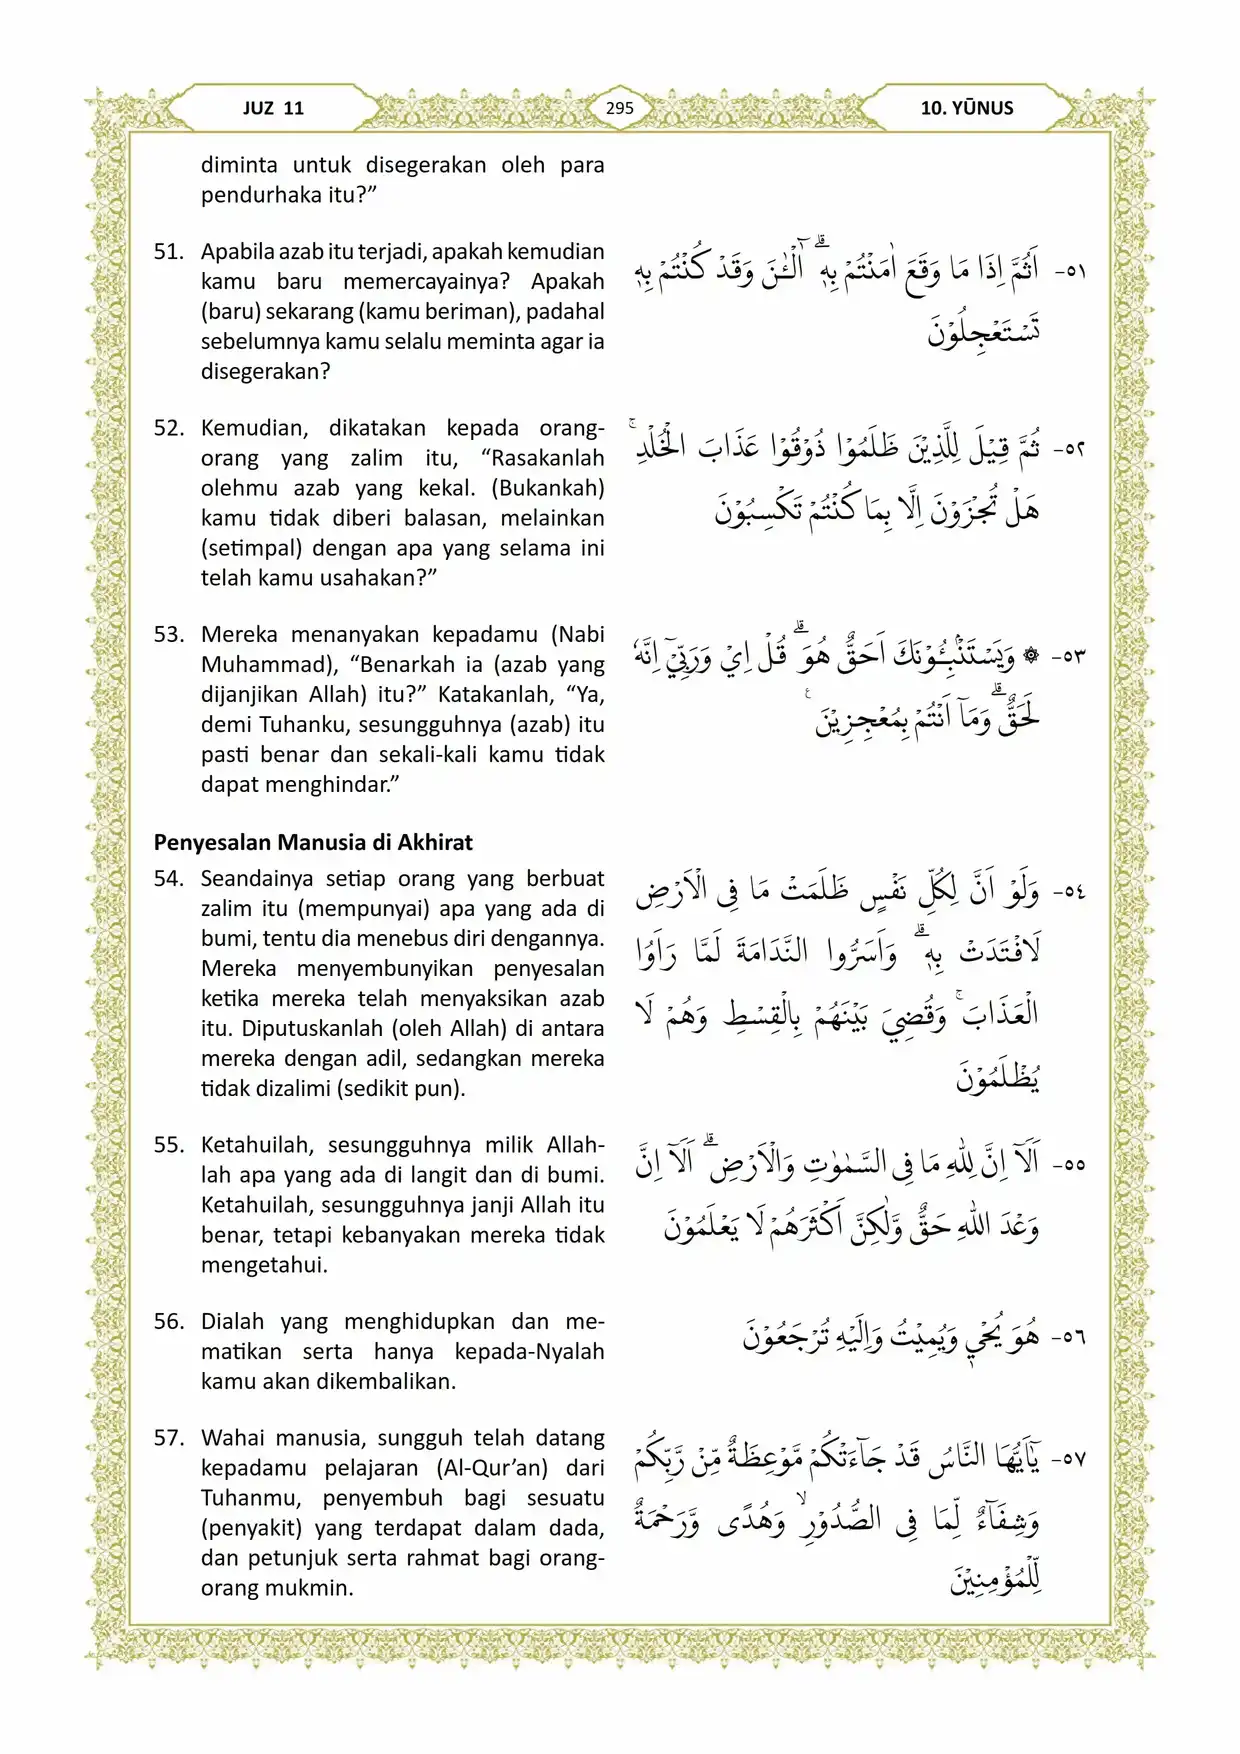 JUZ 11
295
10. YŪNUS
diminta untuk disegerakan oleh para
pendurhaka itu?”
51. Apabila azab itu terjadi, apakah kemudian
kamu baru memercayainya? Apakah
(baru) sekarang (kamu beriman), padahal
sebelumnya kamu selalu meminta agar ia
disegerakan?
٥١- اَثُمَّ اِذَا مَا وَقَعَ اٰمَنْتُمْ بِهٖۗ اٰۤلْـٰٔنَ وَقَدْ كُنْتُمْ بِهٖ
تَسْتَعْجِلُوْنَ
52. Kemudian, dikatakan kepada orang-
orang yang zalim itu, “Rasakanlah
olehmu azab yang kekal. (Bukankah)
kamu tidak diberi balasan, melainkan
(setimpal) dengan apa yang selama ini
telah kamu usahakan?”
٥٢- ثُمَّ قِيْلَ لِلَّذِيْنَ ظَلَمُوْا ذُوْقُوْا عَذَابَ الْخُلْدِۚ
هَلْ تُجْزَوْنَ اِلَّا بِمَا كُنْتُمْ تَكْسِبُوْنَ
53. Mereka menanyakan kepadamu (Nabi
Muhammad), “Benarkah ia (azab yang
dijanjikan Allah) itu?” Katakanlah, “Ya,
demi Tuhanku, sesungguhnya (azab) itu
pasti benar dan sekali-kali kamu tidak
dapat menghindar.”
٥٣- ۞ وَيَسْتَنْۢبِـُٔوْنَكَ اَحَقٌّ هُوَۗ قُلْ اِيْ وَرَبِّيْٓ اِنَّهٗ
لَحَقٌّۗ وَمَآ اَنْتُمْ بِمُعْجِزِيْنَ ࣖ
Penyesalan Manusia di Akhirat
54. Seandainya setiap orang yang berbuat
zalim itu (mempunyai) apa yang ada di
bumi, tentu dia menebus diri dengannya.
Mereka menyembunyikan penyesalan
ketika mereka telah menyaksikan azab
itu. Diputuskanlah (oleh Allah) di antara
mereka dengan adil, sedangkan mereka
tidak dizalimi (sedikit pun).
٥٤- وَلَوْ اَنَّ لِكُلِّ نَفْسٍ ظَلَمَتْ مَا فِى الْاَرْضِ
لَافْتَدَتْ بِهٖۗ وَاَسَرُّوا النَّدَامَةَ لَمَّا رَاَوُا
الْعَذَابَۚ وَقُضِيَ بَيْنَهُمْ بِالْقِسْطِ وَهُمْ لَا
يُظْلَمُوْنَ
55. Ketahuilah, sesungguhnya milik Allah-
lah apa yang ada di langit dan di bumi.
Ketahuilah, sesungguhnya janji Allah itu
benar, tetapi kebanyakan mereka tidak
mengetahui.
٥٥- اَلَآ اِنَّ لِلّٰهِ مَا فِى السَّمٰوٰتِ وَالْاَرْضِۗ اَلَآ اِنَّ
وَعْدَ اللّٰهِ حَقٌّ وَّلٰكِنَّ اَكْثَرَهُمْ لَا يَعْلَمُوْنَ
56. Dialah yang menghidupkan dan me-
matikan serta hanya kepada-Nyalah
kamu akan dikembalikan.
٥٦- هُوَ يُحْيٖ وَيُمِيْتُ وَاِلَيْهِ تُرْجَعُوْنَ
57. Wahai manusia, sungguh telah datang
kepadamu pelajaran (Al-Qur’an) dari
Tuhanmu, penyembuh bagi sesuatu
(penyakit) yang terdapat dalam dada,
dan petunjuk serta rahmat bagi orang-
orang mukmin.
٥٧- يٰٓاَيُّهَا النَّاسُ قَدْ جَاۤءَتْكُمْ مَّوْعِظَةٌ مِّنْ رَّبِّكُمْ
وَشِفَاۤءٌ لِّمَا فِى الصُّدُوْرِۙ وَهُدًى وَّرَحْمَةٌ
لِّلْمُؤْمِنِيْنَ